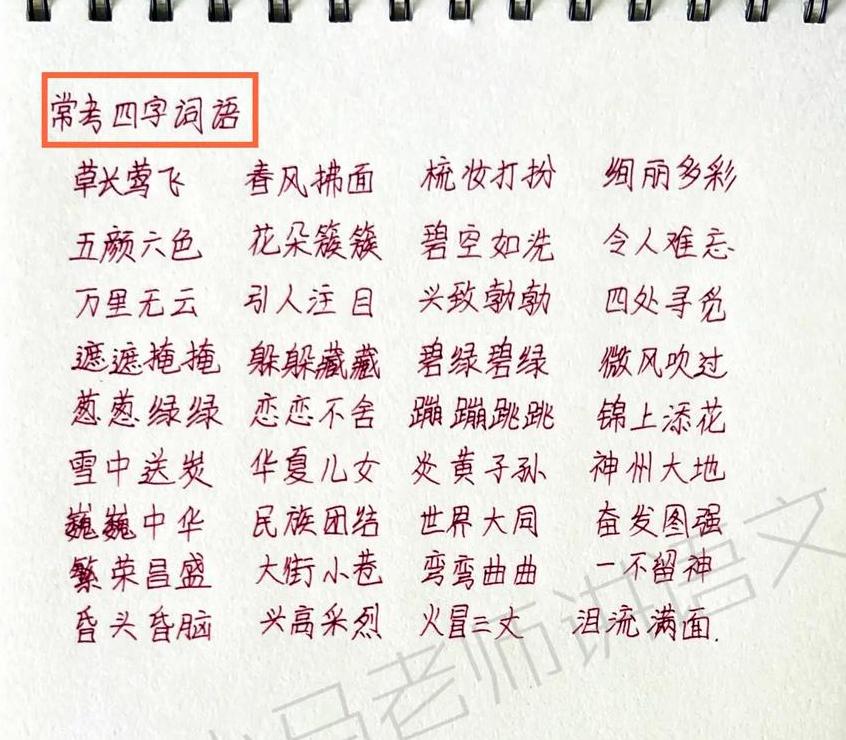 常考四字词语
草长莺飞 春风拂面 梳妆打扮 绚丽多彩
五颜六色 花朵簇簇 碧空如洗 令人难忘
万里无云 引人注目 兴致勃勃 四处寻觅
遮遮掩掩 躲躲藏藏 碧绿碧绿 微风吹过
葱葱绿绿 恋恋不舍 蹦蹦跳跳 锦上添花
雪中送炭 华夏儿女 炎黄子孙 神州大地
巍巍中华 民族团结 世界大同 奋发图强
繁荣昌盛 大街小巷 弯弯曲曲 一不留神
昏头昏脑 兴高采烈 火冒三丈 泪流满面.
马老师讲语文